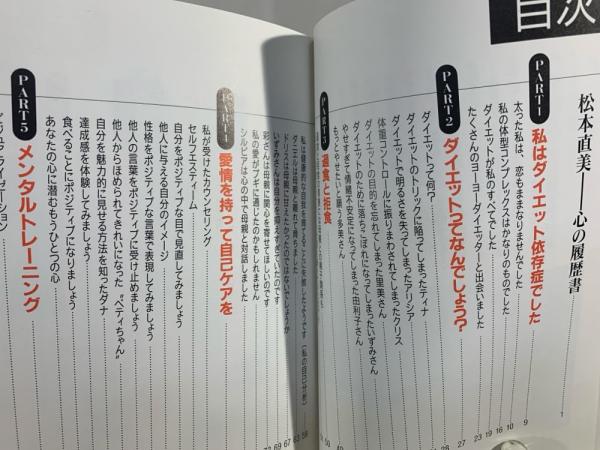 目次
松本直美――心の履歴書
1
PART1
私はダイエット依存症でした
9
太った私は、恋もままなりませんでした
10
私の体型コンプレックスはかなりのものでした
16
ダイエットが私のすべてでした
19
たくさんのヨーヨーダイエッターと出会いました
23
PART2
ダイエットってなんでしょう?
27
ダイエットって何?
28
ダイエットのトリックに陥ってしまったティナ
ダイエットで明るさを失ってしまったアリシア
体重コントロールに振りまわされてしまったクリス
ダイエットの目的を忘れてしまった里美さん
ダイエットのために落ちこぼれになってしまったいずみさん
やせすぎて情緒不安定になってしまった由利子さん
もっとやせたい
多美さん
PART3
過食と拒食
私は健康的な自我を育てることに失敗したようです(私の自己分析)
ダニエルは母親と離れて育ちました
ドリスは母親に甘えたかったのではないでしょうか
いずみさんは自分を抑えすぎていたのです
彩さんは母親に関心を寄せてほしいのです
私の愛がブギに通じたのかもしれません
シルビアは心の中で母親と対話しました
PART4
愛情を持って自己ケアを
私が受けたカウンセリング
セルフエスティーム
自分をポジティブな目で見直してみましょう
他人に与える自分のイメージ
性格をポジティブな言葉で表現してみましょう
他人の言葉をポジティブに受け止めましょう
他人からほめられてきれいになった“ベティちゃん”
自分を魅力的に見せる方法を知ったダナ
達成感を体験してみましょう
食べることにポジティブになりましょう
あなたの心に潜むもうひとつの心
PART5
メンタルトレーニング
ビジュアライゼーション